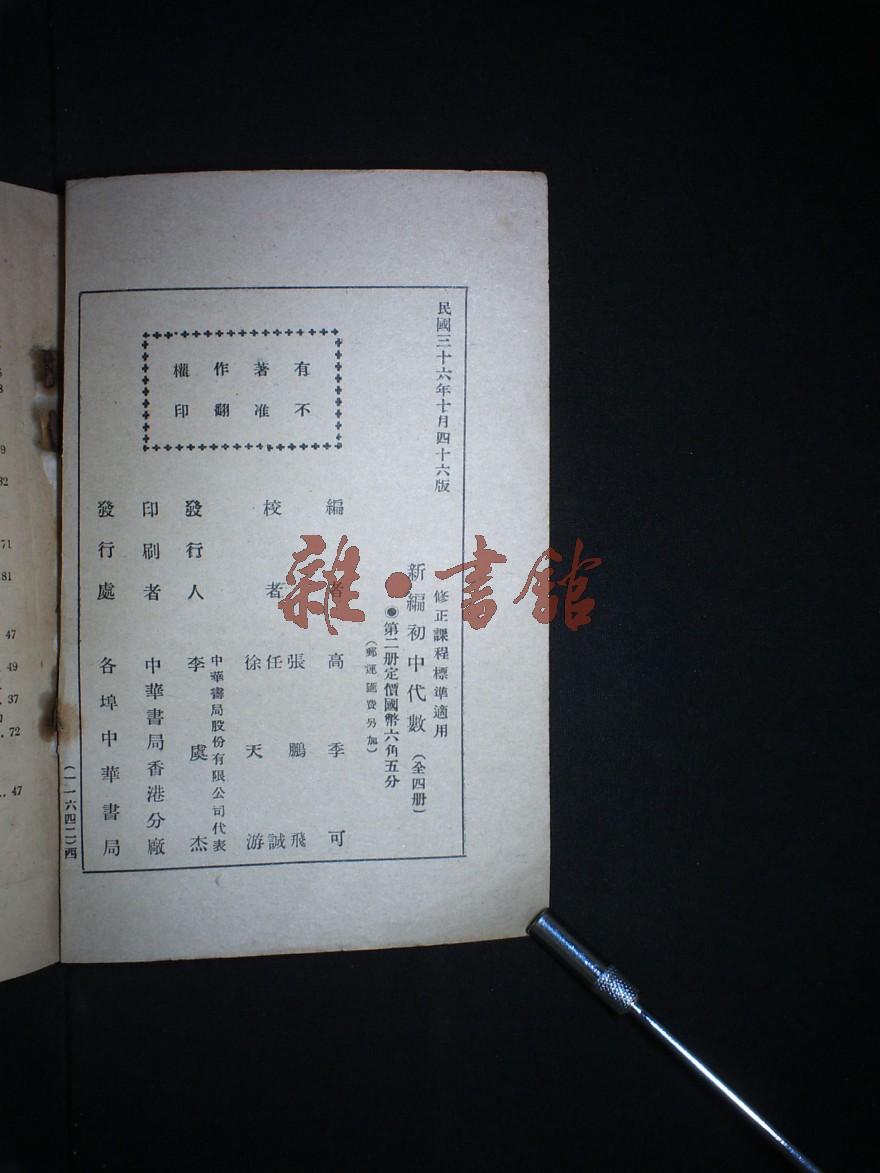 民國三十六年十月四十六版
修正課程標準適用
新編初中代數（全四册）
●第二册定價國幣六角五分
（郵運匯費另加）
有著作權
不准翻印
編者 高季可
校者 張鵬飛
任誠
徐天游
發行人 中華書局股份有限公司代表
李虞杰
印刷者 中華書局香港分廠
發行處 各埠中華書局
（一一六四二）西
雜·書館
9
32
71
81
47
49
37
72
47